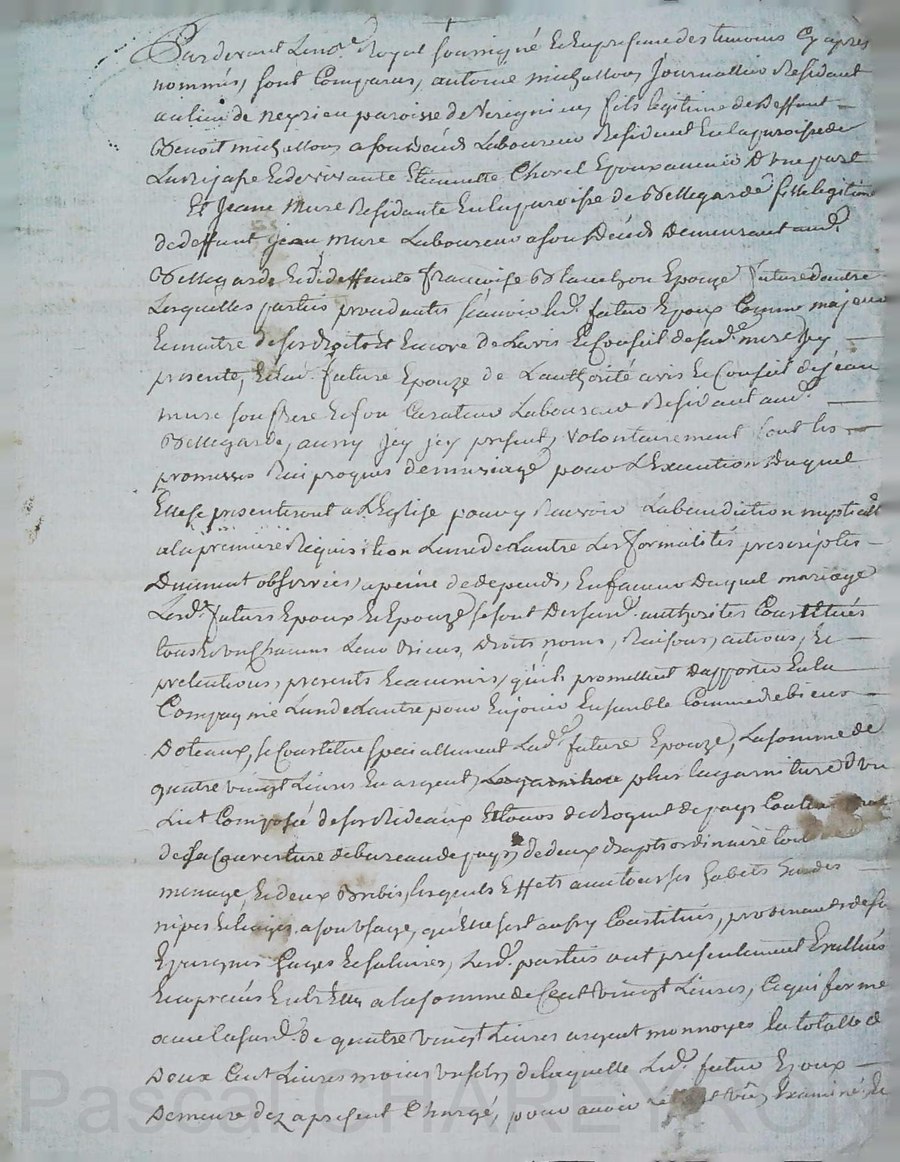 Pardevant Le nore Royal soussigné et En presence des temoins Cy apres
nommés, sont Comparus, antoine michallon Journallier Residant
au lieu de neyrieu paroisse de fils legitime de deffunt
Benoit michallon a son déces Laboureur Residant En la paroisse de
Et de vivante Etiennette Chorel Epoux avenir D'une part
Et Jeane Mure Residante En la paroisse de Bellegarde fille legitime
de deffunt jean Mure Laboureur a son Déces Demeurant aud.
Bellegarde Et de deffunte francoise Blanchon Epouze future d'autre
Lesquelles parties procedantes scavoir led. futur Epoux Comme majeur
Et maitre de ses droits Et Encore de L'avis Et Conseil de sad. mere Icy
presente, Et lad. future Epouze de L'authorité avis Et Conseil de jean
mure son frere Et son Curateur Laboureur Residant aud.
Bellegarde, aussy Icy present, volontairement font les
promesses Reciproques de mariage pour L'Execution Duquel
Elles se presenteront a L'Eglise pour y Recevoir La benediction nuptialle
a la premiere Requisition L'une de L'autre Les formalités prescriptes
Duement observées, a peine de depends, En faveur Duquel mariage
Lesd. futurs Epoux Et Epouze se sont Dessusd. authorités Constitués
tous Et un Chacuns Leur Biens, Droits noms, Raisons, actions, Et
pretentions, presents Et avenirs, qu'ils promettent D'apporter En la
Compagnie L'un de L'autre pour En jouir Ensemble Comme de biens
Doteaux, se Constitue specialement Lad. future Epouze, La somme de
quatre vingt Livres En argent, La garniture plus la garniture d'un
Lict Composé de ses Rideaux Et tours de de pays
de sa Couverture de bureau de pays, de deux draps ordinaire
menage, Et deux Brebis, lesquels Effets avec tous ses habits hardes
nipes Et linges a son usage, qu'Elle s'est aussy Constitués, provenants de ses
Epargnes Gages Et salaires, Lesd. parties ont presentement Evallués
Et apreciés Entre Elles a la somme de Cent vingt Livres, Ce qui forme
avec la susd. de quatre vingt Livres argent monnoyés la totalle de
Deux Cent Livres moins un sols, de laquelle Led. futur Epoux
Demeure dez a present Chargé, pour avoir Examiné, Et
Pascal CHAREYRON